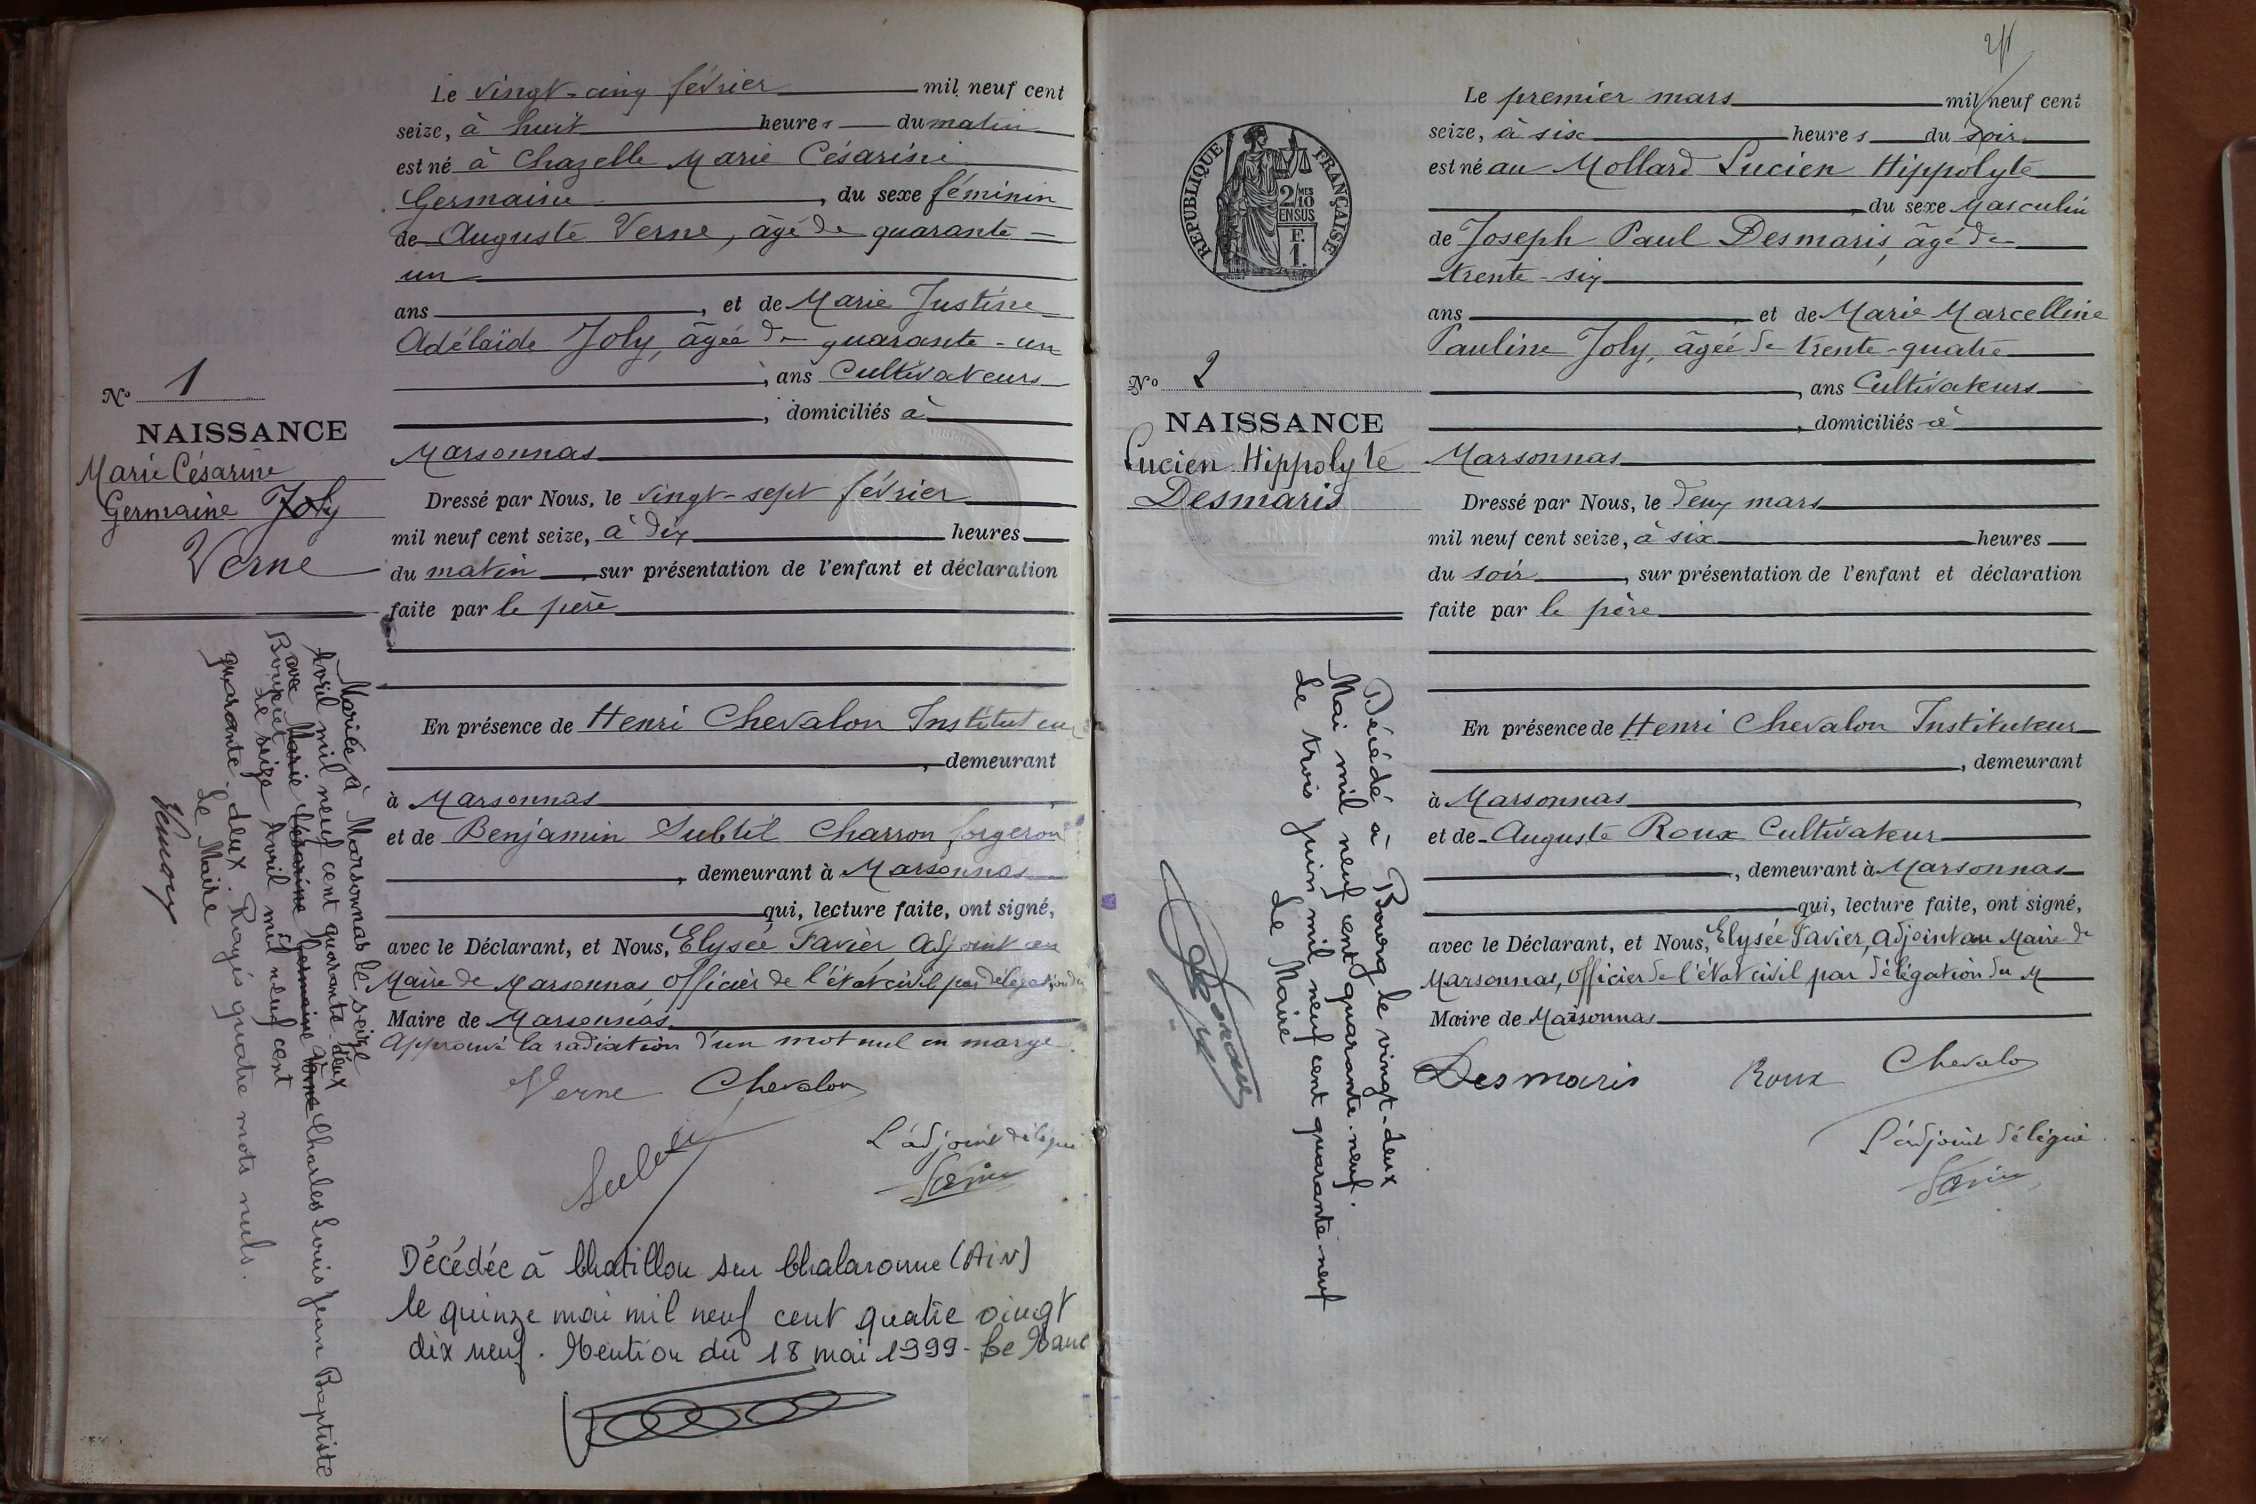 Le vingt-cinq février mil neuf cent
seize, à huit heures du matin
est né à Chazelle Marie Césarine
Germaine, du sexe féminin
de Auguste Verne, âgé de quarante-
un
ans, et de Marie Justine
Adélaïde Joly, âgée de quarante-un
, ans Cultivateurs
, domiciliés à
Marsonnas
Dressé par Nous, le vingt-sept février
mil neuf cent seize, à dix heures
du matin, sur présentation de l'enfant et déclaration
faite par le père
En présence de Henri Chevalon Instituteur
, demeurant
à Marsonnas
et de Benjamin Subtil Charron forgeron
, demeurant à Marsonnas
qui, lecture faite, ont signé,
avec le Déclarant, et Nous, Elysée Favier Adjoint au
Maire de Marsonnas Officier de l'état civil par délégation du
Maire de Marsonnas
Approuvé la radiation d'un mot nul en marge.
Verne Chevalon
Subtil
L'adjoint délégué
Décédée à Chatillon sur Chalaronne (Ain)
le quinze mai mil neuf cent quatre vingt
dix neuf. Mention du 18 mai 1999 - Le Maire
No 1
NAISSANCE
Marie Césarine
Germaine Joly
Verne
Mariée à Marsonnas le seize
Avril mil neuf cent quarante-deux
avec Marie Césarine Germaine Verne Charles Louis Jean Baptiste
Le seize Avril mil neuf cent
quarante-deux. Rayés quatre mots nuls.
Le Maire
Le premier mars mil neuf cent
seize, à six heures du soir
est né au Mollard Lucien Hippolyte
, du sexe Masculin
de Joseph Paul Desmaris, âgé de
trente-six
ans et de Marie Marcelline
Pauline Joly, âgée de trente-quatre
, ans Cultivateurs
, domiciliés à
Marsonnas
Dressé par Nous, le deux mars
mil neuf cent seize, à six heures
du soir, sur présentation de l'enfant et déclaration
faite par le père
En présence de Henri Chevalon Instituteur
, demeurant
à Marsonnas,
et de Auguste Roux Cultivateur
, demeurant à Marsonnas
qui, lecture faite, ont signé,
avec le Déclarant, et Nous, Elysée Favier, Adjoint au Maire de
Marsonnas, Officier de l'état civil par délégation du M
Maire de Marsonnas
Desmaris Roux Chevalon
L'adjoint délégué
RÉPUBLIQUE FRANÇAISE
2/10MES
EN SUS
F.
1.
No 2
NAISSANCE
Lucien Hippolyte
Desmaris
Décédé à Bourg le vingt-deux
Mai mil neuf cent quarante-neuf.
Le trois juin mil neuf cent quarante-neuf
Le Maire